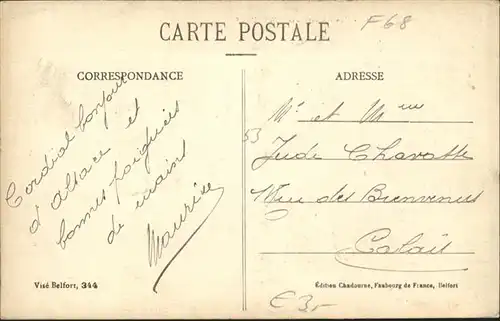 CARTE POSTALE
F68
CORRESPONDANCE
Cordial bonjour
d'alsace et
bonnes poignées
de mains
Maurice
ADRESSE
Mr et Mme
53
Jude Chavatte
Rue des Bienvenus
Calais
Visé Belfort, 344
Édition Chadourne, Faubourg de France, Belfort
€3,-